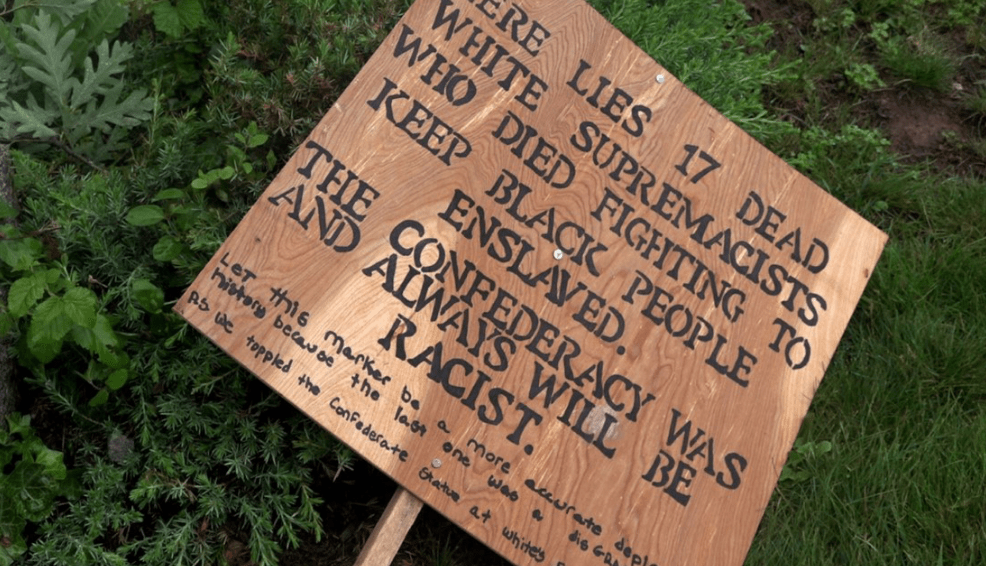 ERE LIES 17 DEAD
WHITE SUPREMACISTS
WHO DIED FIGHTING TO
KEEP BLACK PEOPLE
ENSLAVED.
THE CONFEDERACY WAS
AND ALWAYS WILL BE
RACIST.
Let this marker be a more accurate depi
history because the last one was a disgra
As we toppled the Confederate statue at whitey